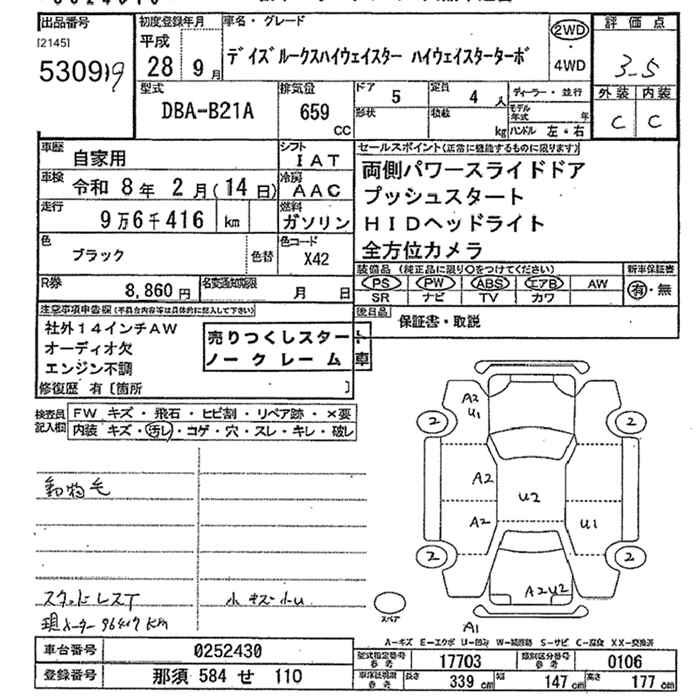 出品番号
[2145]
53099
初度登録年月
平成
28 9 月
車名・グレード
デイズルークスハイウェイスター ハイウェイスターターボ
2WD
・
4WD
評価点
3-5
外装 内装
C C
型式
DBA-B21A
排気量
659
CC
ドア 5
定員 4 人
形状
積載 kg
ディーラー・並行
モデル年式 年
ハンドル 左・右
車歴
自家用
シフト
IAT
セールスポイント(正常に機能するものに限ります)
両側パワースライドドア
プッシュスタート
HIDヘッドライト
全方位カメラ
車検
令和 8年 2月(14日)
冷房
AAC
走行
9万6千416 km
燃料
ガソリン
色
ブラック
色替
色コード
X42
装備品(純正品に限り○をつけてください)
PS PW ABS エアB AW
SR ナビ TV カワ
新車保証書
有・無
R券
8,860円
名変通知期限
月 日
後日品
保証書・取説
注意事項申告欄(不具合内容等は具体的に記入して下さい)
社外14インチAW
オーディオ欠
エンジン不調
修復歴 有〔箇所 〕
売りつくしスタート
ノークレーム車
検査員記入欄
FW キズ・飛石・ヒビ割・リペア跡・×要
内装 キズ・汚レ・コゲ・穴・スレ・キレ・破レ
動物毛
スタッドレスT
現メーター96417km
小キズ小U
A2
U1
2
2
A2
U2
A2
U1
2
2
A2U2
スペア
A1
A-キズ E-エクボ U-凹み W-補修跡 S-サビ C-腐食 XX-交換済
車台番号
0252430
登録番号
那須 584 せ 110
型式指定番号
参考
17703
類別区分番号
参考
0106
車体寸法
参考
長さ
339 cm
幅
147 cm
高さ
177 cm